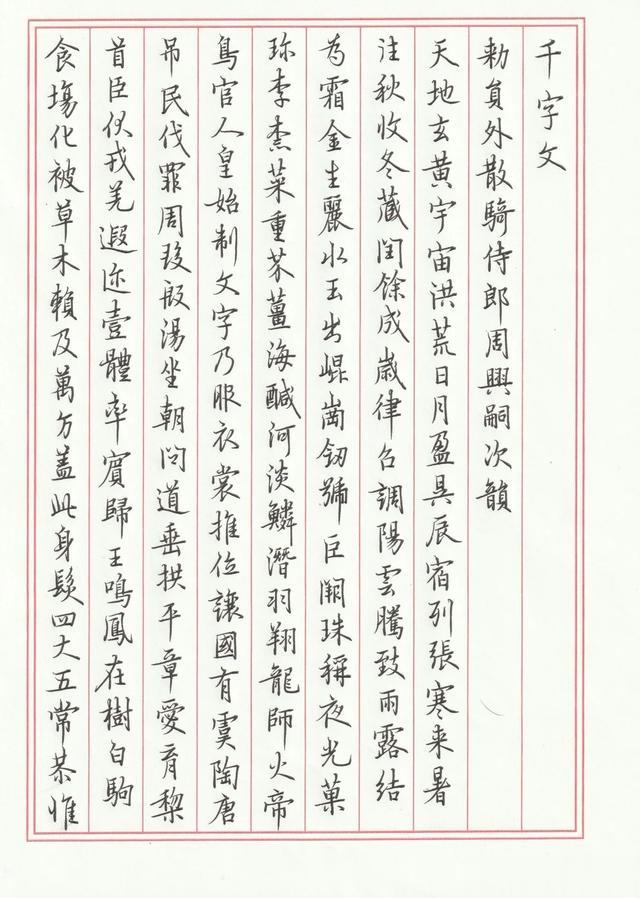 千字文
勅員外散騎侍郎周興嗣次韻
天地玄黃宇宙洪荒日月盈昃辰宿列張寒来暑
往秋收冬藏閏餘成歲律召調陽雲騰致雨露結
為霜金生麗水玉出崐崗劒號巨闕珠稱夜光菓
珎李柰菜重芥薑海鹹河淡鱗潛羽翔龍師火帝
鳥官人皇始制文字乃服衣裳推位讓國有虞陶唐
吊民伐罪周發殷湯坐朝問道垂拱平章愛育黎
首臣伏戎羌遐迩壹體率賓歸王鳴鳳在樹白駒
食場化被草木賴及萬方蓋此身髮四大五常恭惟